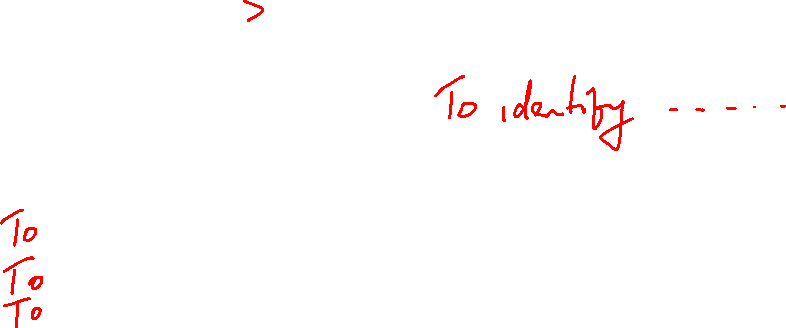 >
To identify -----
To
To
To